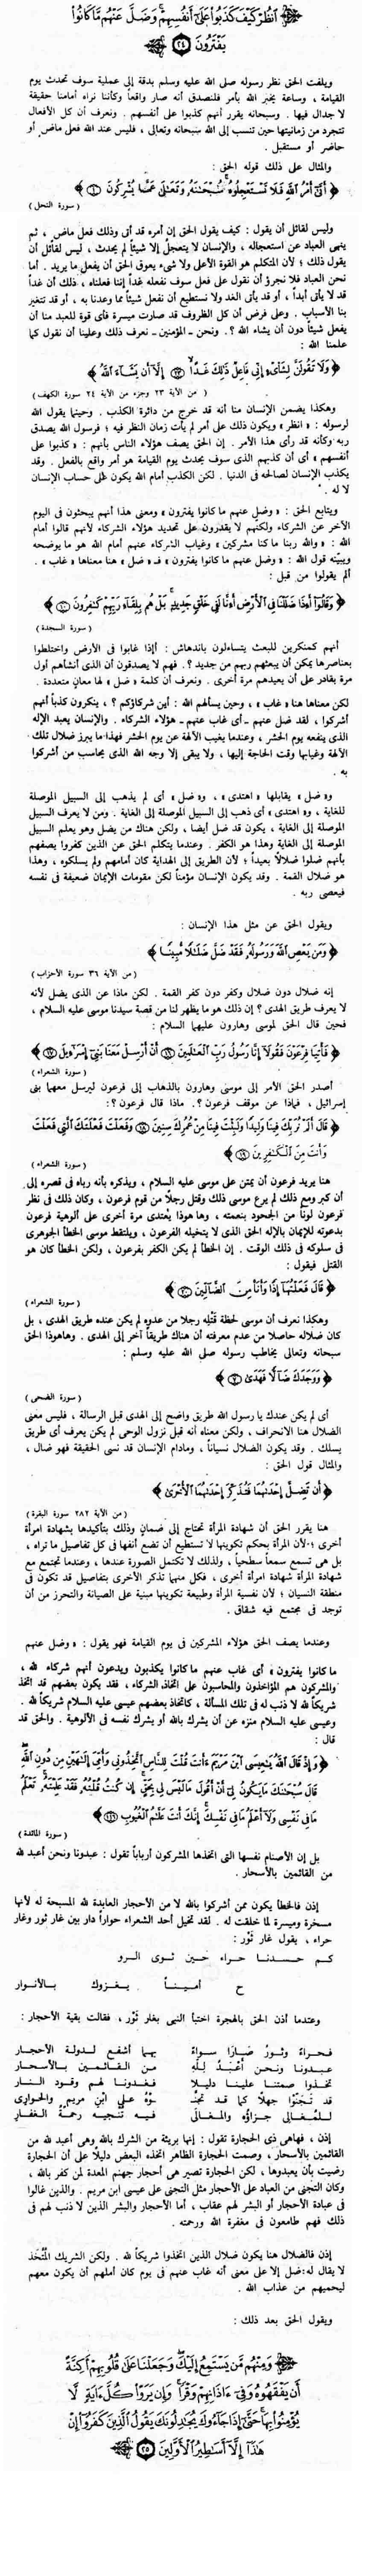 انظر كيف كذبوا على أنفسهم وضل عنهم ما كانوا
يفترون ٢٤
ويلفت الحق نظر رسوله صلى الله عليه وسلم بدقة إلى عملية سوف تحدث يوم
القيامة ، وساعة يخبر الله بأمر فلنصدق أنه صار واقعاً وكأننا نراه أمامنا حقيقة
لا جدال فيها . وسبحانه يقرر أنهم كذبوا على أنفسهم . ونعرف أن كل الأفعال
تتجرد من زمانيتها حين تنسب إلى الله سبحانه وتعالى ، فليس عند الله فعل ماض أو
حاضر أو مستقبل .
والمثال على ذلك قوله الحق :
﴿ أتى أمر الله فلا تستعجلوه سبحانه وتعالى عما يشركون ١ ﴾
( سورة النحل )
وليس لقائل أن يقول : كيف يقول الحق إن أمره قد أتى وذلك فعل ماض ، ثم
ينهى العباد عن استعجاله ، والإنسان لا يتعجل إلا شيئاً لم يحدث ، ليس لقائل أن
يقول ذلك ؛ لأن المتكلم هو القوة الأعلى ولا شىء يعوق الحق أن يفعل ما يريد . أما
نحن العباد فلا نجرؤ أن نقول على فعل سوف نفعله غداً إننا فعلناه ، ذلك أن غداً
قد لا يأتى أبداً ، أو قد يأتى الغد ولا نستطيع أن نفعل شيئاً مما وعدنا به ، أو قد تتغير
بنا الأسباب . وعلى فرض أن كل الظروف قد صارت ميسرة فأى قوة للعبد منا أن
يفعل شيئاً دون أن يشاء الله ؟. ونحن - المؤمنين - نعرف ذلك وعلينا أن نقول كما
علمنا الله :
﴿ ولا تقولن لشاىء إنى فاعل ذلك غدا ٢٣ إلا أن يشاء الله ﴾
( من الآية ٢٣ وجزء من الآية ٢٤ سورة الكهف )
وهكذا يضمن الإنسان منا أنه قد خرج من دائرة الكذب . وحينما يقول الله
لرسوله : « انظر » ويكون ذلك على أمر لم يأت زمان النظر فيه ؛ فرسول الله يصدق
ربه وكأنه قد رأى هذا الأمر . إن الحق يصف هؤلاء الناس بأنهم : « كذبوا على
أنفسهم » أى أن كذبهم الذى سوف يحدث يوم القيامة هو أمر واقع بالفعل . وقد
يكذب الإنسان لصالحه فى الدنيا . لكن الكذب أمام الله يكون على حساب الإنسان
لا له .
ويتابع الحق : « وضل عنهم ما كانوا يفترون » ومعنى هذا أنهم يبحثون فى اليوم
الآخر عن الشركاء ولكنهم لا يقدرون على تحديد هؤلاء الشركاء لأنهم قالوا أمام
الله : « والله ربنا ما كنا مشركين » وغياب الشركاء عنهم أمام الله هو ما يوضحه
ويبينه قول الله : « وضل عنهم ما كانوا يفترون » فـ « ضل » هنا معناها « غاب » .
ألم يقولوا من قبل :
﴿ وقالوا أءذا ضللنا فى الأرض أءنا لفى خلق جديد بل هم بلقاء ربهم كافرون ١٠ ﴾
( سورة السجدة )
أنهم كمنكرين للبعث يتساءلون باندهاش : أإذا غابوا فى الأرض واختلطوا
بعناصرها يمكن أن يبعثهم ربهم من جديد ؟. فهم لا يصدقون أن الذى أنشأهم أول
مرة بقادر على أن يعيدهم مرة أخرى . ونعرف أن كلمة « ضل » لها معان متعددة .
لكن معناها هنا « غاب » ، وحين يسألهم الله : أين شركاؤكم ؟ ، ينكرون كذباً أنهم
أشركوا ، لقد ضل عنهم - أى غاب عنهم - هؤلاء الشركاء . والإنسان يعبد الإله
الذى ينفعه يوم الحشر ، وعندما يغيب الآلهة عن يوم الحشر فهذا ما يبرز ضلال تلك
الآلهة وغيابها وقت الحاجة إليها ، ولا يبقى إلا وجه الله الذى يحاسب من أشركوا
به .
و« ضل » يقابلها « اهتدى » ، و« ضل » أى لم يذهب إلى السبيل الموصلة
للغاية ، و« اهتدى » أى ذهب إلى السبيل الموصلة إلى الغاية . ومن لا يعرف السبيل
الموصلة إلى الغاية ، يكون قد ضل أيضا ، ولكن هناك من يضل وهو يعلم السبيل
الموصلة إلى الغاية وهذا هو الكفر . وعندما يتكلم الحق عن الذين كفروا يصفهم
بأنهم ضلوا ضلالاً بعيداً ؛ لأن الطريق إلى الهداية كان أمامهم ولم يسلكوه ، وهذا
هو ضلال القمة . وقد يكون الإنسان مؤمناً لكن مقومات الإيمان ضعيفة فى نفسه
فيعصى ربه .
ويقول الحق عن مثل هذا الإنسان :
﴿ ومن يعص الله ورسوله فقد ضل ضلالا مبينا ﴾
( من الآية ٣٦ سورة الأحزاب )
إنه ضلال دون ضلال وكفر دون كفر القمة . لكن ماذا عن الذى يضل لأنه
لا يعرف طريق الهدى ؟ إن ذلك هو ما يظهر لنا من قصة سيدنا موسى عليه السلام ،
فحين قال الحق لموسى وهارون عليهما السلام :
﴿ فأتيا فرعون فقولا إنا رسول رب العالمين ١٦ أن أرسل معنا بنى إسراءيل ١٧ ﴾
( سورة الشعراء )
أصدر الحق الأمر إلى موسى وهارون بالذهاب إلى فرعون ليرسل معهما بنى
إسرائيل ، فماذا عن موقف فرعون ؟. ماذا قال فرعون ؟:
﴿ قال ألم نربك فينا وليدا ولبثت فينا من عمرك سنين ١٨ وفعلت فعلتك التى فعلت
وأنت من الكافرين ١٩ ﴾
( سورة الشعراء )
هنا يريد فرعون أن يمتن على موسى عليه السلام ، ويذكره بأنه رباه فى قصره إلى
أن كبر ومع ذلك لم يرع موسى ذلك وقتل رجلاً من قوم فرعون ، وكان ذلك فى نظر
فرعون لوناً من الجحود بنعمته ، وها هوذا يُعتدى مرة أخرى على ألوهية فرعون
بدعوته للإيمان بالإله الحق الذى لا يتخيله الفرعون ، ويلتقط موسى الخطأ الجوهرى
فى سلوكه فى ذلك الوقت . إن الخطأ لم يكن الكفر بفرعون ، ولكن الخطأ كان هو
القتل فيقول :
﴿ قال فعلتها إذا وأنا من الضالين ٢٠ ﴾
( سورة الشعراء )
وهكذا نعرف أن موسى لحظة قتله رجلا من عدوه لم يكن عنده طريق الهدى ، بل
كان ضلاله حاصلا من عدم معرفته أن هناك طريقاً آخر إلى الهدى . وهاهوذا الحق
سبحانه وتعالى يخاطب رسوله صلى الله عليه وسلم :
﴿ ووجدك ضالا فهدى ٧ ﴾
( سورة الضحى )
أى لم يكن عندك يا رسول الله طريق واضح إلى الهدى قبل الرسالة ، فليس معنى
الضلال هنا الانحراف ، ولكن معناه أنه قبل نزول الوحى لم يكن يعرف أى طريق
يسلك . وقد يكون الضلال نسياناً ، ومادام الإنسان قد نسى الحقيقة فهو ضال ،
والمثال قول الحق :
﴿ أن تضل إحداهما فتذكر إحداهما الأخرى ﴾
( من الآية ٢٨٢ سورة البقرة )
هنا يقرر الحق أن شهادة المرأة تحتاج إلى ضمان وذلك بتأكيدها بشهادة امرأة
أخرى ؛ لأن المرأة بحكم تكوينها لا تستطيع أن تضع أنفها فى كل تفاصيل ما تراه ،
بل هى تسمع سمعاً سطحياً ، ولذلك لا تكتمل الصورة عندها ، وعندما تجتمع مع
شهادة المرأة شهادة امرأة أخرى ، فكل منهما تذكر الأخرى بتفاصيل قد تكون فى
منطقة النسيان ؛ لأن نفسية المرأة وطبيعة تكوينها مبنية على الصيانة والتحرز من أن
توجد فى مجتمع فيه شقاق .
وعندما يصف الحق هؤلاء المشركين فى يوم القيامة فهو يقول : « وضل عنهم
ما كانوا يفترون » أى غاب عنهم ما كانوا يكذبون ويدعون أنهم شركاء لله ،
والمشركون هم المؤاخذون والمحاسبون على اتخاذ الشركاء ، فقد يكون بعضهم قد اتخذ
شريكاً لله لا ذنب له فى تلك المسألة ، كاتخاذ بعضهم عيسى عليه السلام شريكاً لله .
وعيسى عليه السلام منزه عن أن يشرك بالله أو يشرك نفسه فى الألوهية . والحق قد
قال :
﴿ وإذ قال الله يا عيسى ابن مريم ءأنت قلت للناس اتخذونى وأمى إلهين من دون الله
قال سبحانك ما يكون لى أن أقول ما ليس لى بحق إن كنت قلته فقد علمته تعلم
ما فى نفسى ولا أعلم ما فى نفسك إنك أنت علام الغيوب ١١٦ ﴾
( سورة المائدة )
بل إن الأصنام نفسها التى اتخذها المشركون أرباباً تقول : عبدونا ونحن أعبد لله
من القائمين بالأسحار .
إذن فالخطأ يكون ممن أشركوا بالله لا من الأحجار العابدة لله المسبحة له لأنها
مسخرة وميسرة لما خلقت له . لقد تخيل أحد الشعراء حواراً دار بين غار ثور وغار
حراء ، يقول غار ثَوْر :
كـم حـسـدنـا حـراء حـيـن ثـوى الـرو
ح أمـيـنـاً يـغـزوك بـالأنـوار
وعندما أذن الحق بالهجرة اختبأ النبى بغار ثَوْر ، فقالت بقية الأحجار :
فـحـراءٌ وثـورُ صَـارَا سـواءً بهـمـا أشـفـع لـدولـة الأحـجـار
عـبـدونـا ونـحـن أعْـبَـدُ لِـلّهِ مـن الـقـائـمـيـن بـالأسـحـار
تخـذوا صمتنا علينا دليـلا فـغـدونـا لهـم وقـود الـنـار
قد تَجَنّوْا جهلاً كما قد تجنّـ ـوْهُ على ابْنِ مريم والحوارى
للمُـغَـالى جـزاؤه والمـغـالَى فيـه تُنْجيه رحمةُ الغفـار
إذن ، فهاهى ذى الحجارة تقول : إنها بريئة من الشرك بالله وهى أعبد لله من
القائمين بالأسحار ، وصمت الحجارة الظاهر اتخذه البعض دليلاً على أن الحجارة
رضيت بأن يعبدوها ، لكن الحجارة تصير هى أحجار جهنم المعدة لمن كفر بالله ،
وكان التجنى من العباد على الأحجار مثل التجنى على عيسى ابن مريم . والذين غالوا
فى عبادة الأحجار أو البشر لهم عقاب ، أما الأحجار والبشر الذين لا ذنب لهم فى
ذلك فهم طامعون فى مغفرة الله ورحمته .
إذن فالضلال هنا يكون ضلال الذين اتخذوا شريكاً لله . ولكن الشريك المُتّخذ
لا يقال له : ضل إلا على معنى أنه غاب عنهم فى يوم كان أملهم أن يكون معهم
ليحميهم من عذاب الله .
ويقول الحق بعد ذلك :
ومنهم من يستمع إليك وجعلنا على قلوبهم أكنة
أن يفقهوه وفى ءاذانهم وقرا وإن يروا كل ءاية لا
يؤمنوا بها حتى إذا جاءوك يجادلونك يقول الذين كفروا إن
هذا إلا أساطير الأولين ٢٥